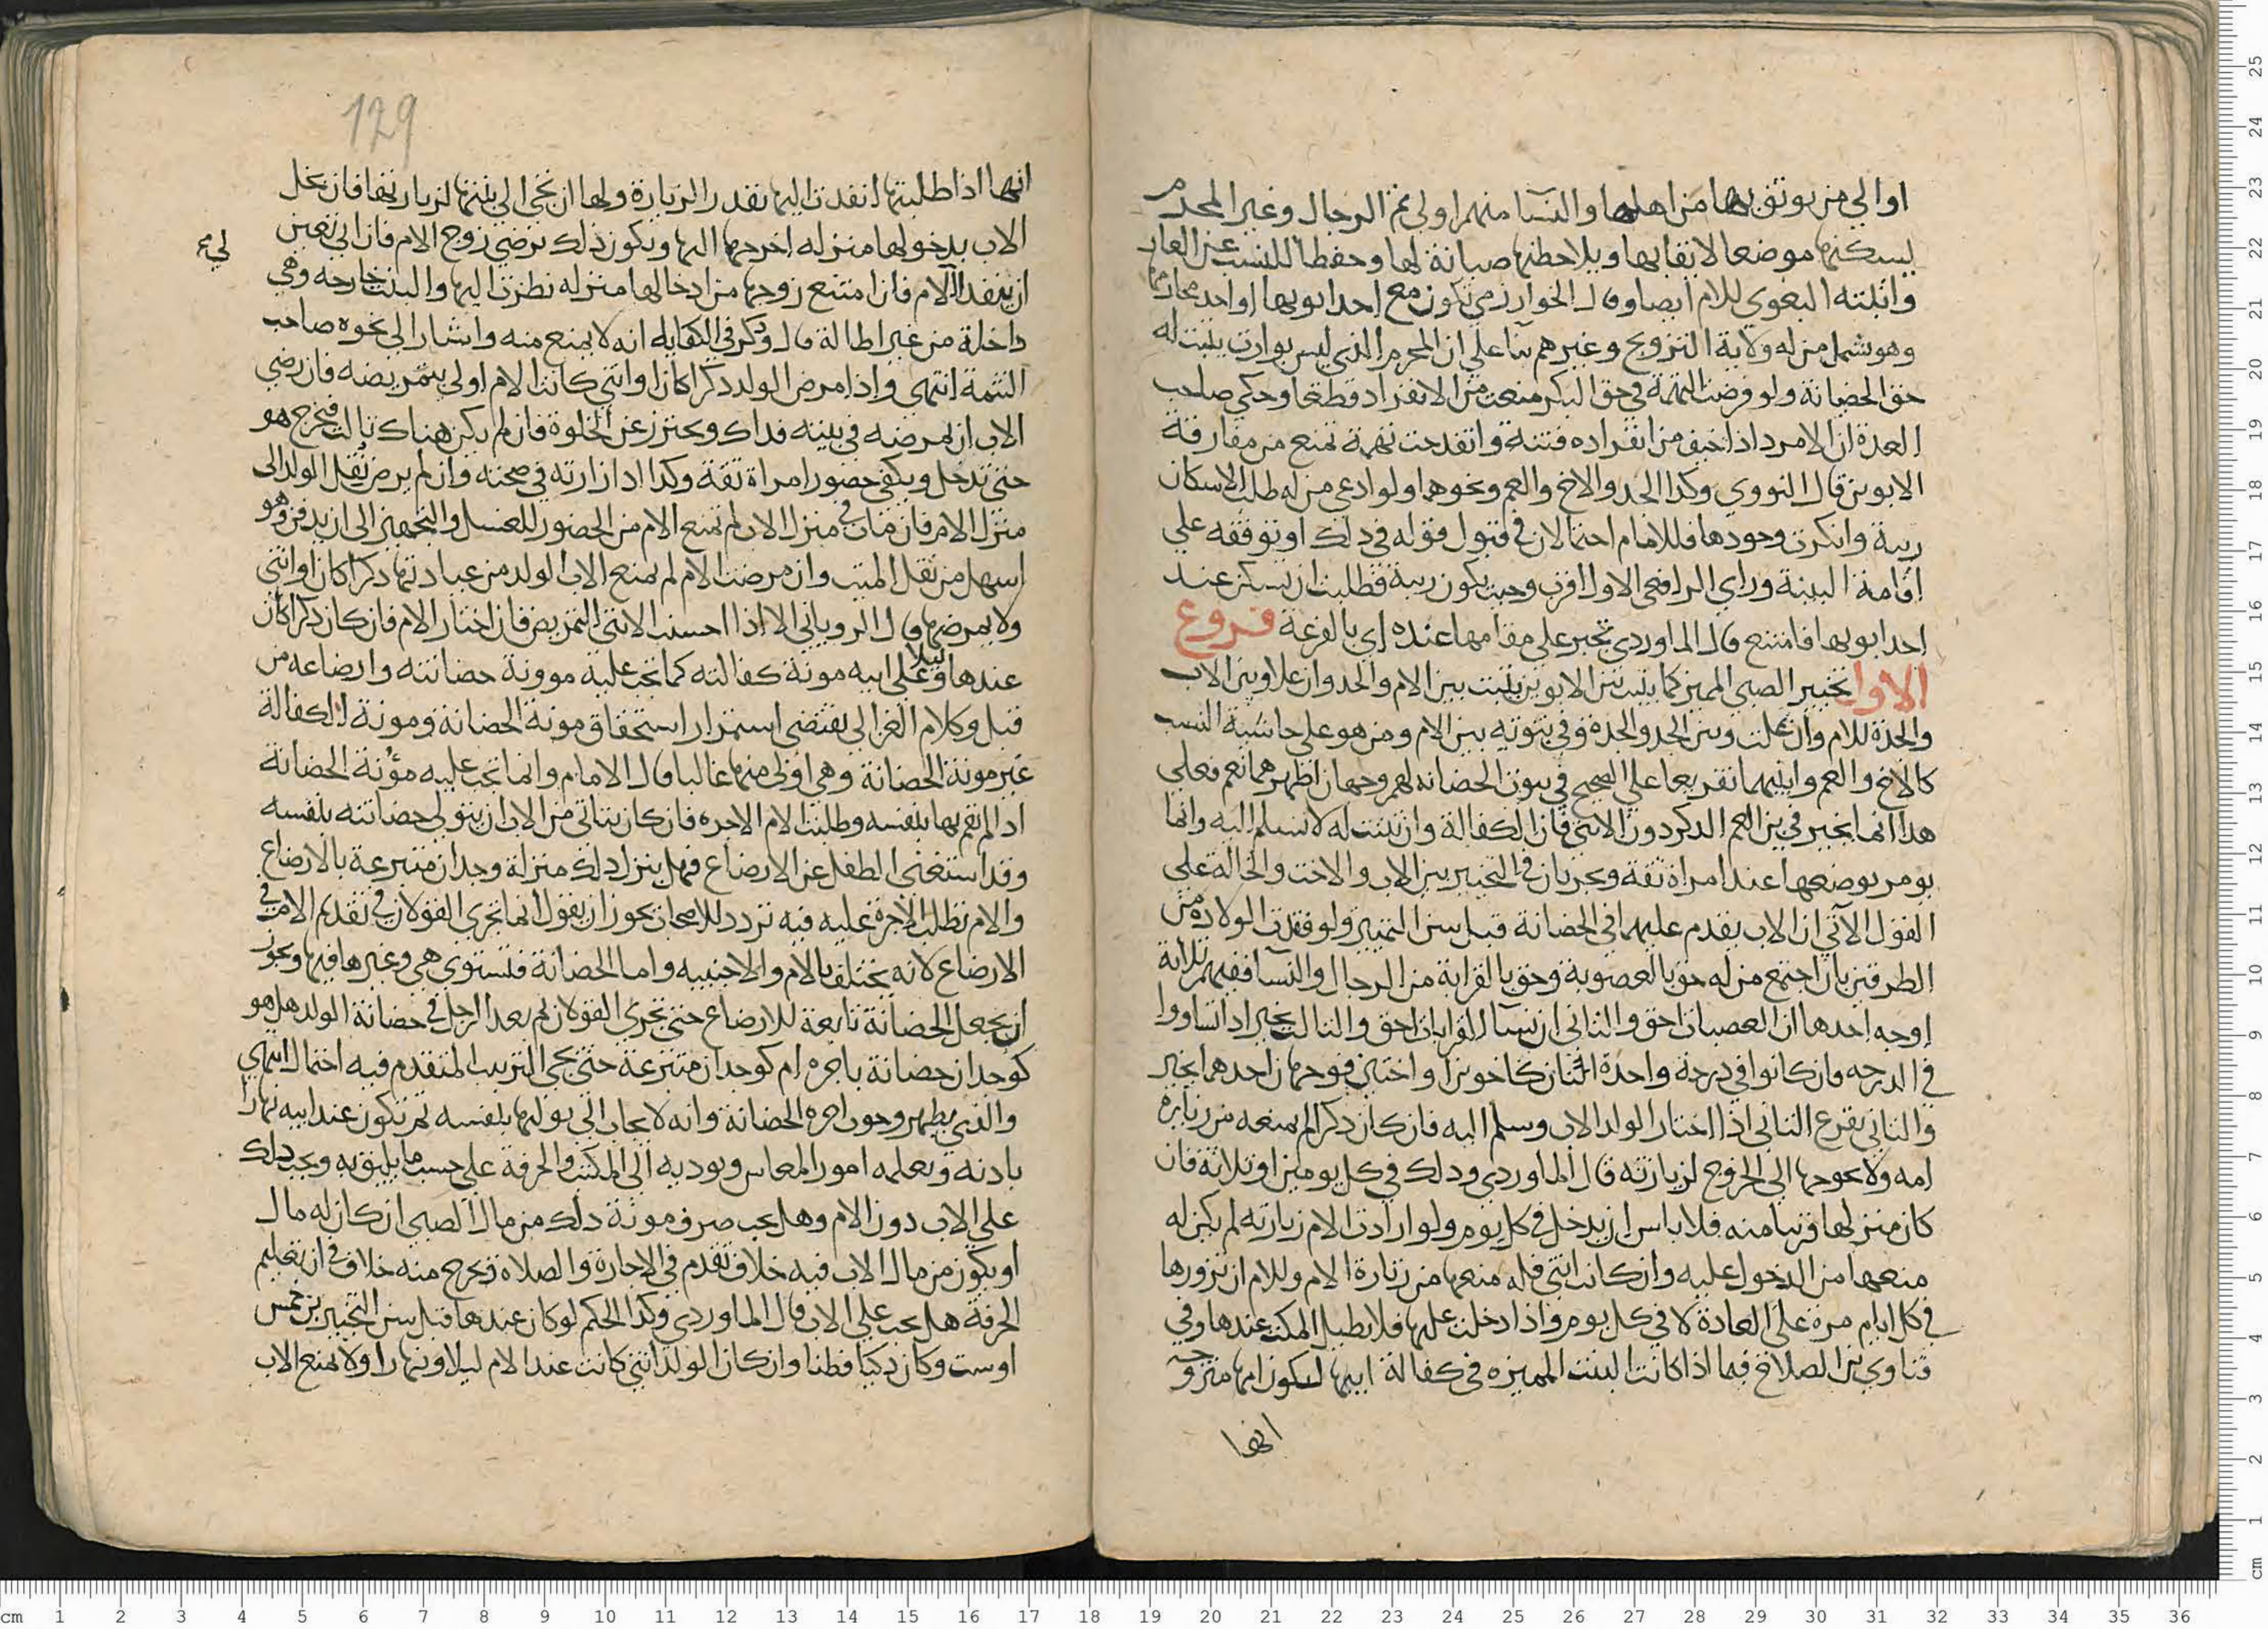 او الي من يوثق بها من اهلها والنسا منهم اولي ثم الرجال وغير المحرم
يسكنها موضعا لايقا بها ويلاحظها صيانة لها وحفظا للنسب عن العار
واثبته البغوي للام ايضا وقال الخوارزمي تكون مع احد ابويها او احد محارمها
وهو يشمل من له ولاية التزويج وغيرهم بنا علي ان المحرم الذي ليس بوارث يثبت له
حق الحضانة ولو فرضت التهمة في حق البكر منعت من الانفراد قطعا وحكي صاحب
العدة ان الامرد اذا خيف من انفراده فتنة وانقدحت تهمة تمنع من مفارقة
الابوين قال النووي وكذا الجد والاخ والعم ونحوهما ولو ادعي من له طلب الاسكان
ريبة وانكرت وجودها فللامام احتمالان في قبول قوله في ذلك او توقفه علي
اقامة البينة وراي الرافعي الاول اقرب وحيث يكون ريبة فطلبت ان تسكن عند
احد ابويها فامتنع قال الماوردي تجبر علي مقامها عنده اي بالقرعة فروع
الاول تخيير الصبي المميز كما يثبت بين الابوين يثبت بين الام والجد وان علا وبين الاب
والجدة للام وان علت وبين الجد والجدة وفي ثبوته بين الام ومن هو علي حاشية النسب
كالاخ والعم وابنيهما تفريعا علي الصحيح في ثبوت الحضانة لهم وجهان اظهرهما نعم فعلي
هذا انما يخير في بن العم الذكر دون الانثي فان الكفالة وان ثبتت له لا تسلم اليه وانما
يومر بوضعها عند امراة ثقة ويجريان في التخيير بين الاب والاخت والخالة علي
القول الاتي ان الاب يقدم عليهما في الحضانة قبل سن التمييز ولو فقدت الولادة من
الطرفين بان اجتمع من له حق بالعصوبة وحق بالقرابة من الرجال والنسا ففيهم ثلاثة
اوجه احدها ان العصبات احق والثاني ان نسآ القرابات احق والثالث يخير اذا تساووا
في الدرجه وان كانوا في درجة واحدة اثنان كاخوين او اختين فوجهان احدهما يخير
والثاني يقرع الثاني اذا اختار الولد الاب وسلم اليه فان كان ذكرا لم يمنعه من زيارة
امه ولا يحوجها الي الخروج لزيارته قال الماوردي وذلك في كل يومين او ثلاثة فان
كان منزلها قريبا منه فلا باس ان يدخل في كل يوم ولو ارادت الام زيارته لم يكن له
منعها من الدخول عليه وان كانت انثي فله منعها من زيارة الام وللام ان تزورها
في كل ايام مرة علي العادة لا في كل يوم واذا دخلت عليها فلا يطيل المكث عندها وفي
فتاوي بن الصلاح فيما اذا كانت البنت المميزه في كفالة ابيها لكون امها متزوجة
انها
129
انها اذا طلبتها انفذت اليها بقدر الزيارة ولها ان تجي الي بيتها لزيارتها فان بخل
الاب بدخولها منزله اخرجها اليها ويكون ذلك برضي زوج الام فان ابي تعين
ان ينفذ الي الام فان امتنع زوجها من ادخالها منزله نظرت اليها والبنت خارجه وهي
داخلة من غير اطالة قال وذكر في الكفايه انه لا يمنع منه واشار الي نحوه صاحب
التتمة انتهي واذا مرض الولد ذكرا كان او انثي كانت الام اولي بتمريضه فان رضي
الاب ان يمرضه في بيته فذاك ويحترز عن الخلوة فان لم يكن هناك ثالث فيخرج هو
حتي تدخل ويكفي حضور امراة ثقة وكذا اذا زارته في صحته وان لم يرض نقل الولد الي
منزل الام فان مات في منزل الاب لم تمنع الام من الحضور للغسل والتجهيز الي ان يدفن وهو
اسهل من نقل الميت وان مرضت الام لم يمنع الاب الولد من عيادتها ذكرا كان او انثي
ولا يمرضها قال الروياني الا اذا احسنت الانثي التمريض فان اختار الام فان كان ذكرا كان
عندها ليلا وعلي ابيه مونة كفالته كما تجب عليه موونة حضانته وارضاعه من
قبل وكلام الغزالي يقتضي استمرار استحقاق مونة الحضانة ومونة الكفالة
غير مونة الحضانة وهي اولي منها غالبا قال الامام وانما تجب عليه مؤنة الحضانة
اذا لم يقم بها بنفسه وطلبت الام الاجره فان كان يتاتي من الاب ان يتولي حضانته بنفسه
وقد استغني الطفل عن الارضاع فهل ينزل ذلك منزلة وجدان متبرعة بالارضاع
والام تطلب الاجرة عليه فيه تردد للاصحاب يجوز ان يقول انما تجري القولان في تقديم الام في
الارضاع لانه يختلف بالام والاجنبيه واما الحضانة فتستوي هي وغيرها فيها ويجوز
ان يجعل الحضانة تابعة للارضاع حتي تجري القولان ثم بعد الرجل في حضانة الولد هل هو
كوجدان حضانة باجره ام كوجدان متبرعة حتي يجي الترتيب المتقدم فيه احتمال انتهي
والذي يظهر وجوب اجرة الحضانة وانه لا يجاب الي توليها بنفسه ثم تكون عند ابيه نهارا
يادبه ويعلمه امور المعاش ويوديه الي المكتب والحرفة علي حسب ما يليق به ويجب ذلك
علي الاب دون الام وهل يجب صرف مونة ذلك من مال الصبي ان كان له مال
او يكون من مال الاب فيه خلاف تقدم في الاجارة والصلاة وتخرج منه خلاف في ان تعليم
الحرفة هل يجب علي الاب قال الماوردي وكذا الحكم لو كان عندها قبل سن التخيير بن خمس
او ست وكان ذكيا فطنا وان كان الولد انثي كانت عند الام ليلا ونهارا ولا يمنع الاب